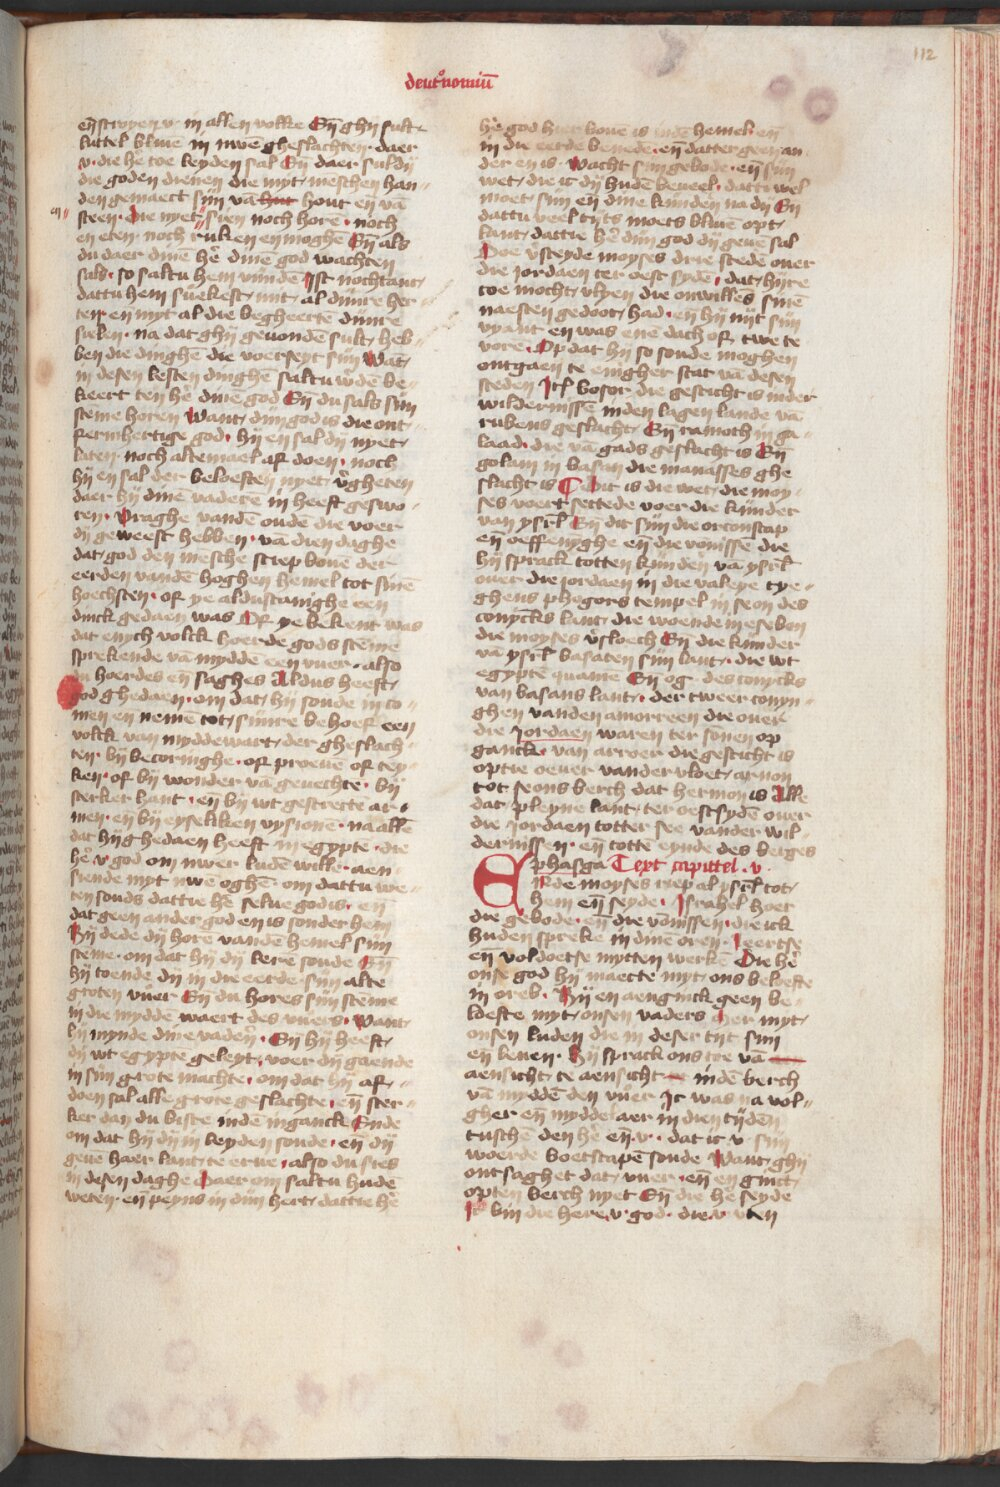 112
deut'nomiū
eñ stroyen v in allen volke Eñ ghij sult
luttel bliuē in uwē gheslachten daer
v die he toe leyden sal Eñ daer suldij
die goden dienen die myt menschen han
den gemaect sijn vā hut hout eñ vā
en
steen Die nyet sien noch horē noch
en eten noch ruken en moghē Eñ als
du daer dinē hē dinē god wachten
salt so saltu hem vindē Ist nochtant
dattu hem suekest mit al dinre her
ten en myt al die begheerte dinre
sielen na dat ghij geuondē sult heb
ben die dinghē die voerseyt sijn Want
in desen lesten dinghē saltu w'dē be
keert ten hē dinē god Eñ du sals sijn
steme horen Want dijn god is die ont
fermhertige god hij en sal dij nyet
laten noch altemael af doen noch
hij en sal der beloesten nyet v'gheten
daer hij dinē vaderē in heeft geswo
ren Vraghe vandē oudē die voer
dij geweest hebben vā dien daghe
dat god den mēsche sciep bouē der
eerden vandē hoghen hemel tot sinē
hoechsten of ye aldustanighe een
dinck gedaen was Of ye bekent was
dat enych volck hoerde gods stēme
sprekende vā myddē een vuer also
du hoerdes eñ saghes Aldus heeft
god ghedaen om dat hij soude in co
men en nemē tot sinre behoef een
volck van myddewart der gheslach
ten bij becoringhe of proeue of tey
ken of bij wonder vā geuechte bij
sterker hant en bij wt gestrecte ar
men en bij eyseliken vysionē na allē
dat hij ghedaen heeft in egypte die
hē v god om uwer ludē wille aen
siende myt uwē oghē om dattu we
ten souds dattie hē selue god is eñ
dat geen ander god en is sonder hem
Hij dede dij horē vandē hemel sijn
stēme om dat hij dij lere soude Eñ
hij toende dij in die eerde sijn alte
groten vuer Eñ du hores sijn stēme
in die myddē waert des vuers Want
hij mynde dine vaderē Eñ hij heeft
dij wt egypte geleyt voer dij gaende
in sijn grote machte om dat hij af
doen sal alle grote geslachte eñ ster
ker dan du biste indē inganck Ende
om dat hij dij in leyden soude eñ dij
geuē haer lant te erue also du sies
in desen daghe Daer om saltu hudē
weten eñ peyns in dijn hert dattie hē
hē god hier bouē is indē hemel eñ
in die eerde benedē eñ datter geen an
der en is Wacht sijn gebode eñ sijn
wet die ic dij hudē beueel dattu wel
moet sijn eñ dine kinden na dij Eñ
dattu veel tijts moets bliuē opt
lant dattie hē dijn god dij geuē sal
Doe v'steyde moyses drie stedē ouer
die jordaen ter oest sydē dat hijre
toe mocht vlyen die onwilles sinē
naesten gedoot had eñ hij nijt sijn
vyant en was enē dach of twe te
vorē Op dat hij so soude moghen
ontgaen te enigher stat vā desen
steden Jtē bosor die gesticht is inder
wildernissē inden lagen lande vā
rubens geslacht Eñ ramoth in ga
laad die vā gads geslacht is Eñ
golam in basan die manasses ghe
slacht is Dit is die wet die moy
ses voert settede voer die kijnder
van ysrl Eñ dit sijn die orconscap
eñ oeffenyghe eñ die vonissē die
hij sprack totten kinden vā ysrl
ouer die jordaen in die valeye tye
ghens phegors tempel in seon des
conyncks lant die woende in esebon
die moyses v'sloech Eñ die kijnder
vā ysrl besaten sijn lant die wt
egyptē quamē Eñ og des conyncks
van basans lant der tweer conyn
ghen vanden amorreen die ouer
die jordaen waren ter sonen op
ganck van arroer die gesticht is
optie oeuer vander vloet arnon
tot seons berch dat hermon is Alle
dat pleyne lant ter oestsydē ouer
die jordaen totter see vander wil
dernissen eñ totte eynde des berges
phasga Text capittel v
Eñde moyses riep al ysrl tot
hem eñ seyde Israhel hoer
die gebode eñ die vōnissen die ick
huden spreke in dinē oren Leertse
eñ voldoetse mytten werkē Die hē
onse god hij maecte myt ons belofte
in oreb Hij en aenginck geen be
lofte myt onsen vaders Mer myt
onsen luden die in deser tijt sijn
eñ leuen Hij sprack ons toe vā
aensicht te aensicht indē berch
vā myddē den vuer Ic was na vol
gher eñ myddelaer in dien tijdē
tuschē den hē eñ v dat ic v sijn
woerde boetscapē soude Want ghij
ontsaghet dat vuer eñ en ginct
opten berch nyet Eñ die hē seyde
Ic bin die here v god die v vten